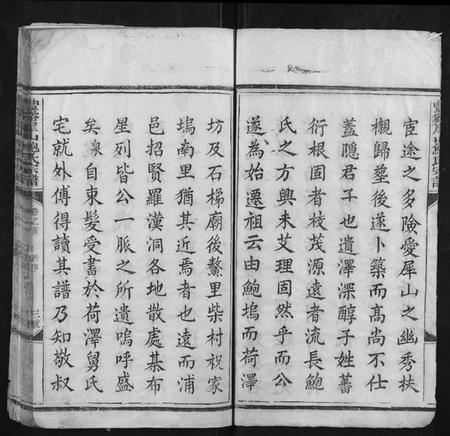 宦途之多險愛犀山之幽秀扶
櫬歸塟後遂卜築而高尚不仕
蓋隱君子也遺澤深醇子姓蕃
衍根固者枝茂源遠者流長鮑
氏之方興未艾理固然乎而公
遂為始遷祖云由鮑塢而荷澤
坊及石梯廟後鰲里柴村祝家
塢南里猶其近焉者也遠而浦
邑招賢羅漢洞各地散處棊布
星列皆公一脈之所遺嗚呼盛
矣㵎自束髮受書於荷澤舅氏
宅就外傅得讀其譜乃知敬叔
鮑氏宗譜
卷之首
三